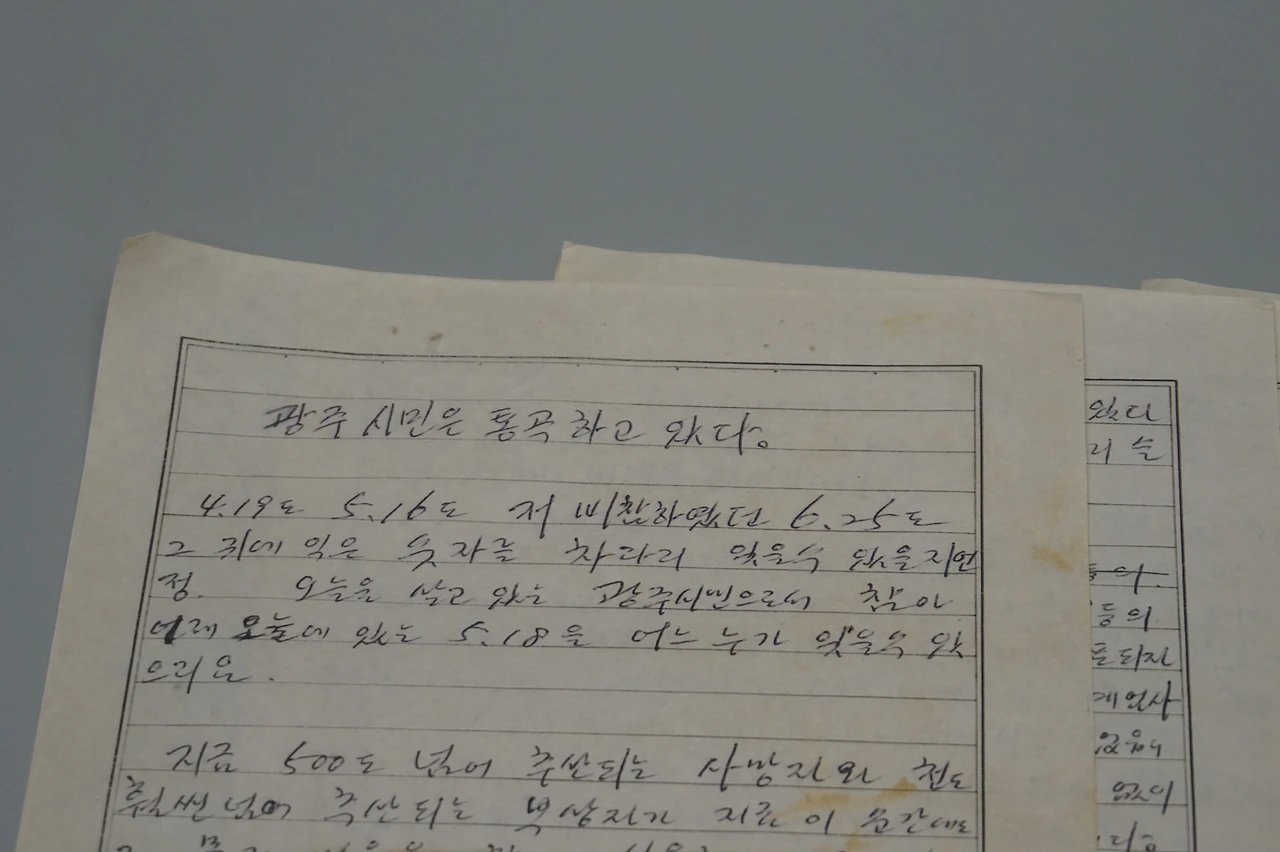 광주 시민은 통곡하고 있다.
4.19도 5.16도 저 비참하였던 6.25도
그 귀에 익은 숫자를 차라리 잊을수 있을지언
정. 오늘을 살고 있는 광주시민으로서
오늘에 있는 5.18을 어느 누가 잊을수 있
으리요.
지금 500도 넘어 추산되는 사망자와 천도
훨씬 넘어 추산되는 부상자가 지금 이 순간에도
있다
리 슬
들의
되자
계엄사
없이